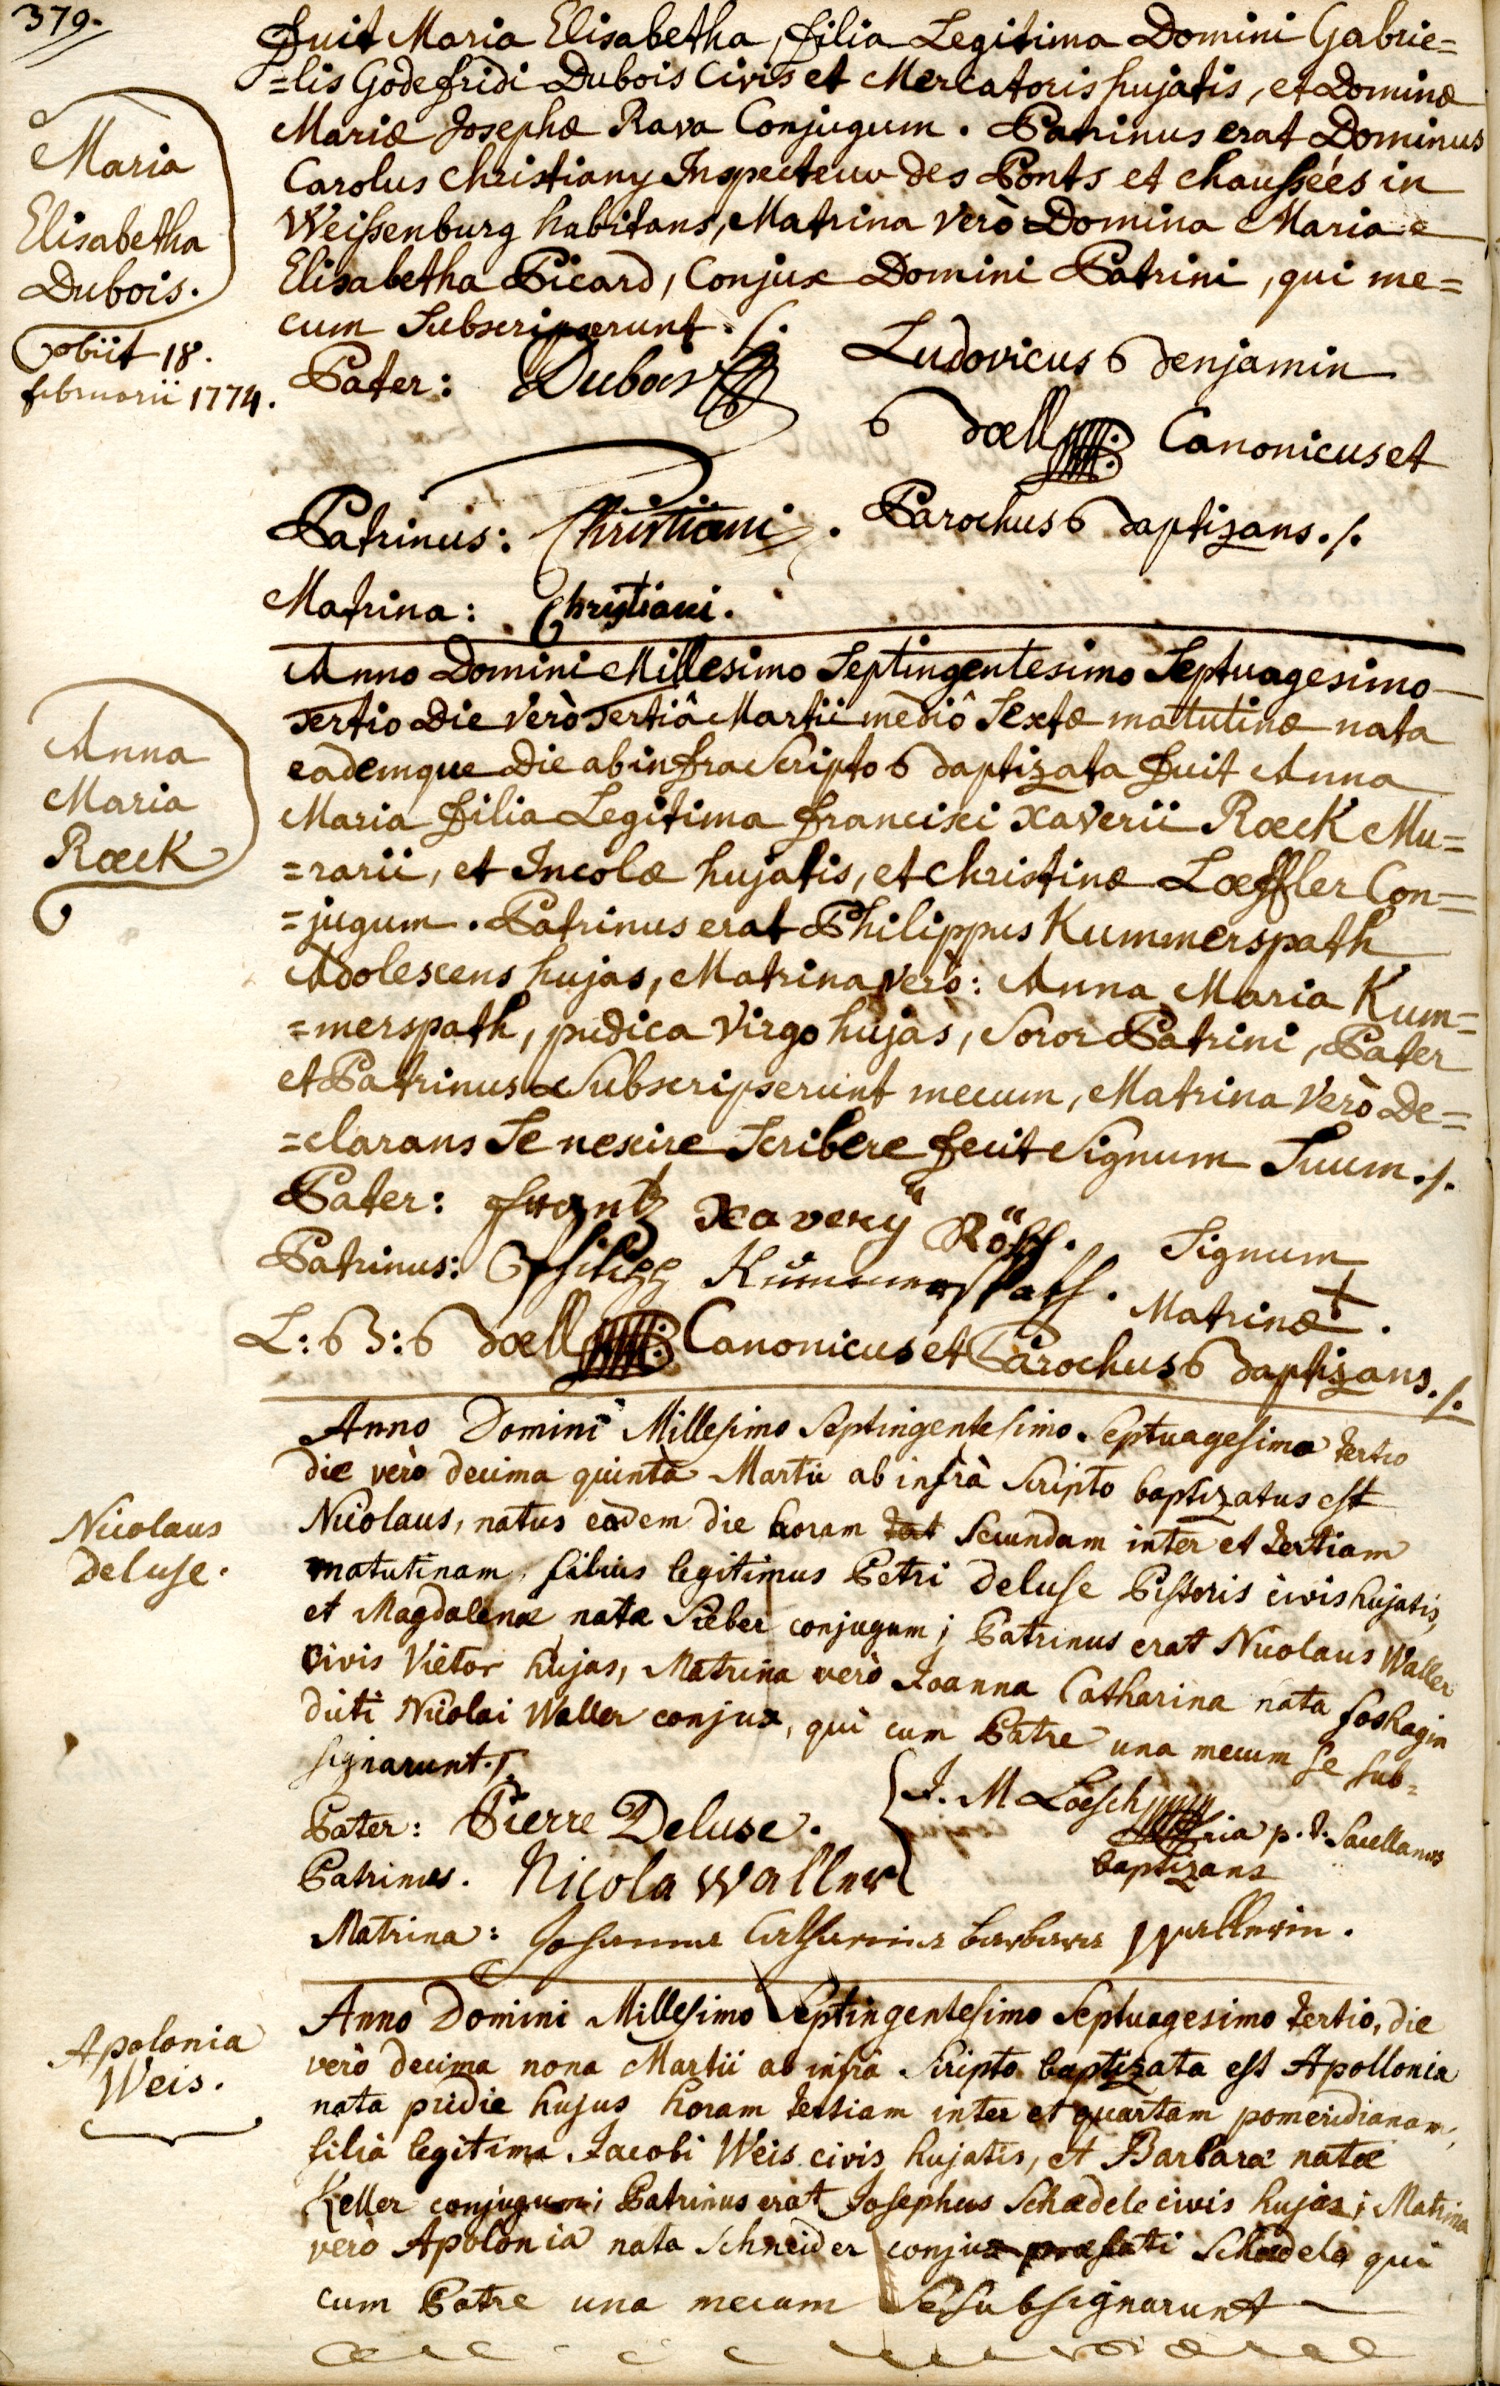 379.
Maria
Elisabetha
Dubois.
obiit 18.
februarii 1774.
fuit Maria Elisabetha, filia Legitima Domini Gabrie=
=lis Godefridi Dubois Civis et Mercatoris hujatis, et Dominæ
Mariæ Josephæ Rava Conjugum. Patrinus erat Dominus
Carolus Christiany Inspecteur des Ponts et chaussées in
Weissenburg habitans, Matrina verò Domina Maria
Elisabetha Picard, Conjux Domini Patrini, qui me=
cum Subscripserunt ./.
Pater: Dubois
Ludovicus Benjamin
Bœll Canonicus et
Parochus Baptizans ./.
Patrinus: Christiani.
Matrina: Christiani.
Anna
Maria
Rœck
Anno Domini Millesimo Septingentesimo Septuagesimo
Tertio Die verò Tertiâ Martii mediô Sextæ matutinæ nata
eademque Die ab infra Scripto Baptizata fuit Anna
Maria filia Legitima francisci Xaverii Rœck Mu=
=rarii, et Incolæ hujatis, et Christinæ Lœffler Con=
=jugum. Patrinus erat Philippus Kummerspath
Adolescens hujas, Matrina verò: Anna Maria Kum=
=merspath, pudica Virgo hujas, Soror Patrini, Pater
et Patrinus Subscripserunt mecum, Matrina verò De=
=clarans Se nescire Scribere fecit Signum Suum ./.
Pater: frantz Xavery Röck.
Patrinus: Philipp Kummerspath.
Signum
Matrinæ +.
L: B: Bœll Canonicus et Parochus Baptizans ./.
Nicolaus
Deluse.
Anno Domini Millesimo Septingentesimo Septuagesimo tertio
die verò decima quintà Martii ab infrà Scripto baptizatus est
Nicolaus, natus eâdem die horam Secundam inter et tertiam
matutinam, filius legitimus Petri Deluse Pistoris civis hujatis,
et Magdalenæ natæ Sieber conjugum; Patrinus erat Nicolaus Waller
civis Vietor hujas, Matrina verò Joanna Catharina nata
dicti Nicolai Waller conjux, qui cum Patre una mecum se sub=
signarunt ./.
Pater: Pierre Deluse.
J. M Loesch
p. t. Sacellanus
baptizans
Patrinus. Nicola Waller
Matrina: Johanna Catharina barbara Wallerin.
Apolonia
Weis.
Anno Domini Millesimo Septingentesimo Septuagesimo tertio, die
verò decima nona Martii ab infrà Scripto baptizata est Apollonia
nata pridie hujus horam tertiam inter et quartam pomeridianam,
filia legitima Jacobi Weis civis hujatis, et Barbaræ natæ
Keller conjugum; Patrinus erat Josephus Schædele civis hujas; Matrina
verò Apolonia nata Schneider conjux præfati Schædele qui
cum Patre una mecum Se subsignarunt